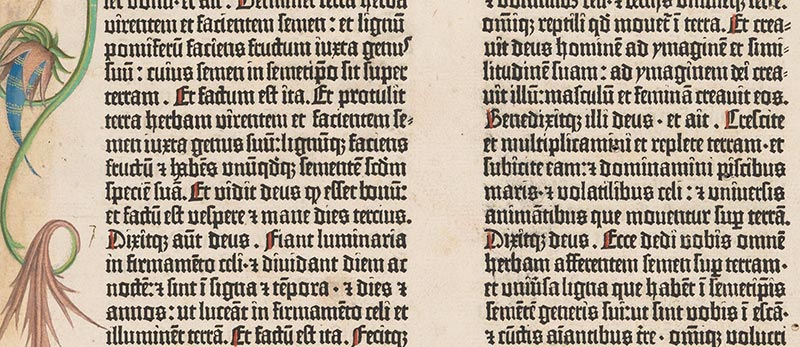 let bonū · et ait · Germinet terra herbā
virentem et facientem semen : et lignū
pomiferū faciens fructum iuxta genus
suū : cuius semen in semetip̄o sit super
terram . Et factum est ita . Et protulit
terra herbam virentem et facientem se⸗
men iuxta genus suū : lignūq; faciens
fructū ⁊ habēs unūqd̄q; sementē scd̄m
speciē suā . Et vidit deus ꝙ esset bonū :
et factū est vespere ⁊ mane dies tercius .
Dixitq; aūt deus . Fiant luminaria
in firmamēto celi · ⁊ dividant diem ac
noctē : ⁊ sint ī signa ⁊ tēpora · ⁊ dies ⁊
annos : ut luceāt in firmamēto celi et
illuminēt terrā . Et factū est ita . Fecitq;
⁊ dominus celi · ⁊
om̄iq; reptili qd̄ movet̄ ī terra . Et crea⸗
vit deus hominē ad ymaginē et simi⸗
litudinē suam : ad ymaginem dei crea⸗
vit illū : masculū et feminā creavit eos .
Benedixitq; illi deus · et ait . Crescite
et multiplicamini et replete terram · et
subicite eam : ⁊ dominamini piscibus
maris · ⁊ volatilibus celi : ⁊ universis
animātibus que moventur sup̄ terrā .
Dixitq; deus . Ecce dedi vobis omnē
herbam afferentem semen sup̄ terram ·
et univ̄sa ligna que habēt ī semetip̄is
semētē generis sui : ut sint vobis ī escā ·
⁊ cūctis aīantibus tr̄e · om̄iq; volucri